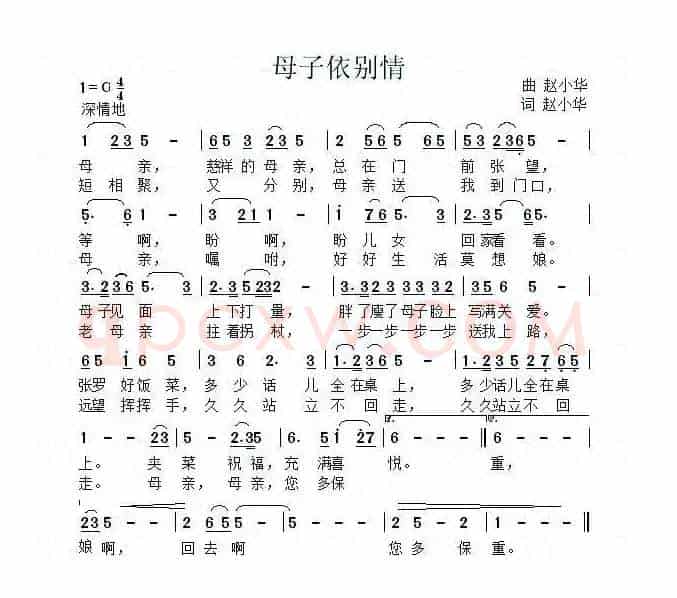 母子依别情
1=G 4/4
曲 赵小华
深情地
词 赵小华
1 235 - | 653· 2 3 - | 2 565 5 65 | 53 2365 - |
母 亲， 慈祥的母亲，总在门 前张望，
短相聚， 又 分别，母亲送 我到门口，
5· 6 1 - | 3 21 1 - | i 765· 3 | 2·35 05· |
等 啊， 盼 啊， 盼儿女 回家看看。
母 亲， 嘱 咐， 好好生 活莫想娘。
母子见面 上下打量， 胖了瘦了母子脸上 写满关爱。
老母亲 拄着拐杖， 一步一步一步一步 送我上路，
65 i653 - | 3 6 2· 3 | 1·2365 - | 1·235 2765 |
张罗好饭菜，多少话 儿全在桌上， 多少话儿全在桌
远望挥挥手，久久站 立不回走， 久久站立不回
1 - - 23 | 5 - 2·35 | 6· 5i 27 | 6 - - - | 6 - - |
上。 夹菜祝福，充满喜 悦。 重，
走。 母亲，母亲，您多保
235 - - | 2 655 5 - | 5 - - - | 2 5 2 - | 1 - - - ||
娘啊， 回去啊 您多保重。
qpcxw.COM